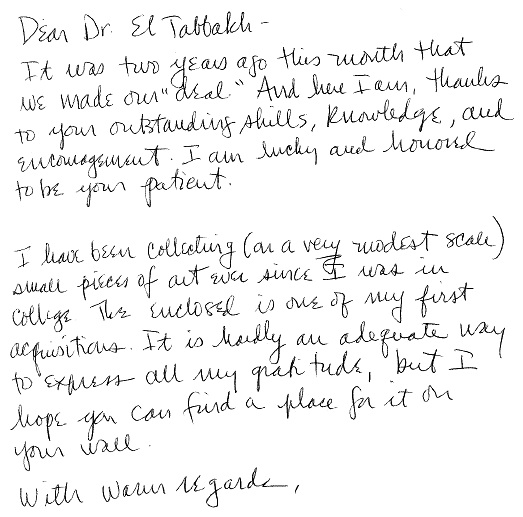 Dear Dr. El Tabbakh -
It was two years ago this month that
we made our "deal." And here I am, thanks
to your outstanding skills, knowledge, and
encouragement. I am lucky and honored
to be your patient.
I have been collecting (on a very modest scale)
small pieces of art ever since I was in
college The enclosed is one of my first
acquisitions. It is hardly an adequate way
to express all my gratitude, but I
hope you can find a place for it on
your wall.
With warm regards,